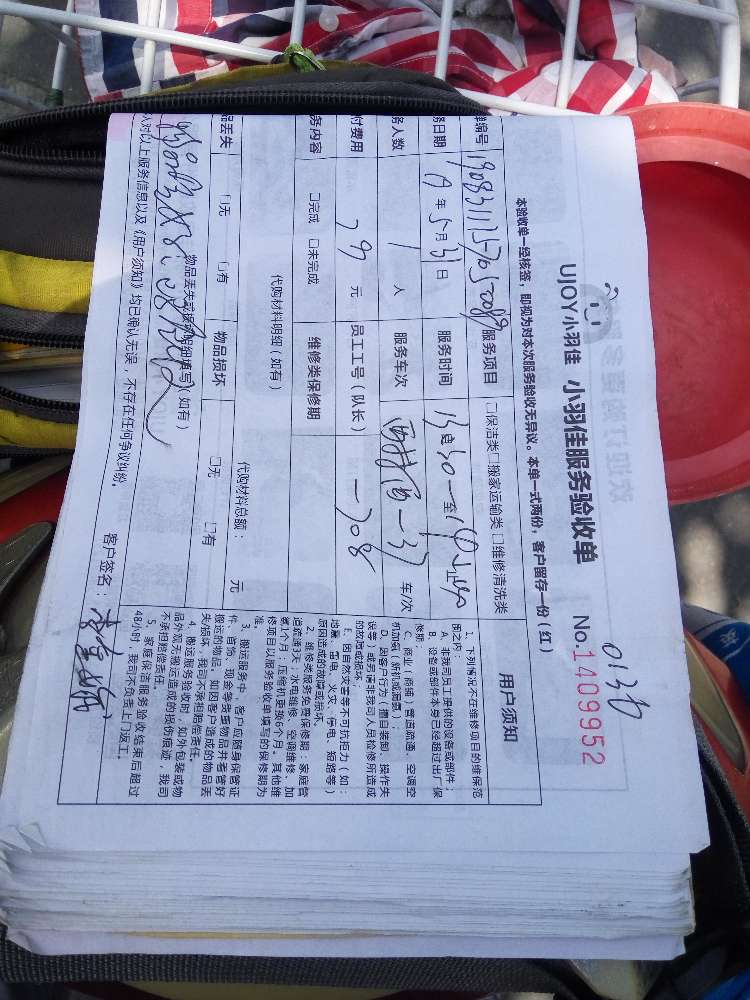 0130
UJOY小羽佳 小羽佳服务验收单 No.1409952
本验收单一经核签，即视为对本次服务验收无异议。本单一式两份，客户留存一份(红)
单编号 服务项目 □保洁类□搬家运输类□维修清洗类
务日期 19年5月31日 服务时间 13:30-至
务人数 1人 服务车次 车次
付费用 79元 员工工号(队长) 一708
务内容 □完成 □未完成 维修类保修期
代购材料明细(如有) 代购材料总额： 元
品丢失 □无 □有 物品损坏 □无 □有
物品丢失或损坏明细填写(如有)
人对以上服务信息以及《用户须知》均已确认无误，不存在任何争议纠纷。
客户签名：
用户须知
1、下列情况不在维修项目的维保范
围之内：
A、非我司员工提供的设备或部件；
B、设备或部件本身已经超过出厂保
修期；
C、商业(商铺)管道疏通、空调空
机加氨(新机或漏氨)；
D、因客户行为(擅自装卸、操作失
误等)或另请非我司人员检修所造成
的故障或损坏。
E、因自然灾害等不可抗拒力(如：
地震、雷电、火灾、停电、短路等)
原因造成的故障或损坏。
2、维修类服务免费保修期：家庭管
道疏通3天；水电维修、空调维修、加
氨1个月；压缩机更换6个月。其他维
修项目以服务验收单填写的保修期为
准。
3、搬运服务中，客户应随身保管证
件、首饰、现金等贵重物品并看管好
搬运的物品。如因客户造成的物品丢
失/损坏，我司不承担赔偿责任。
4、搬运服务验收时，如外包装或物
品外观无搬运造成的损伤痕迹，我司
不承担赔偿责任。
5、家庭保洁服务验收结束后超过
48小时，我司不负责上门返工。